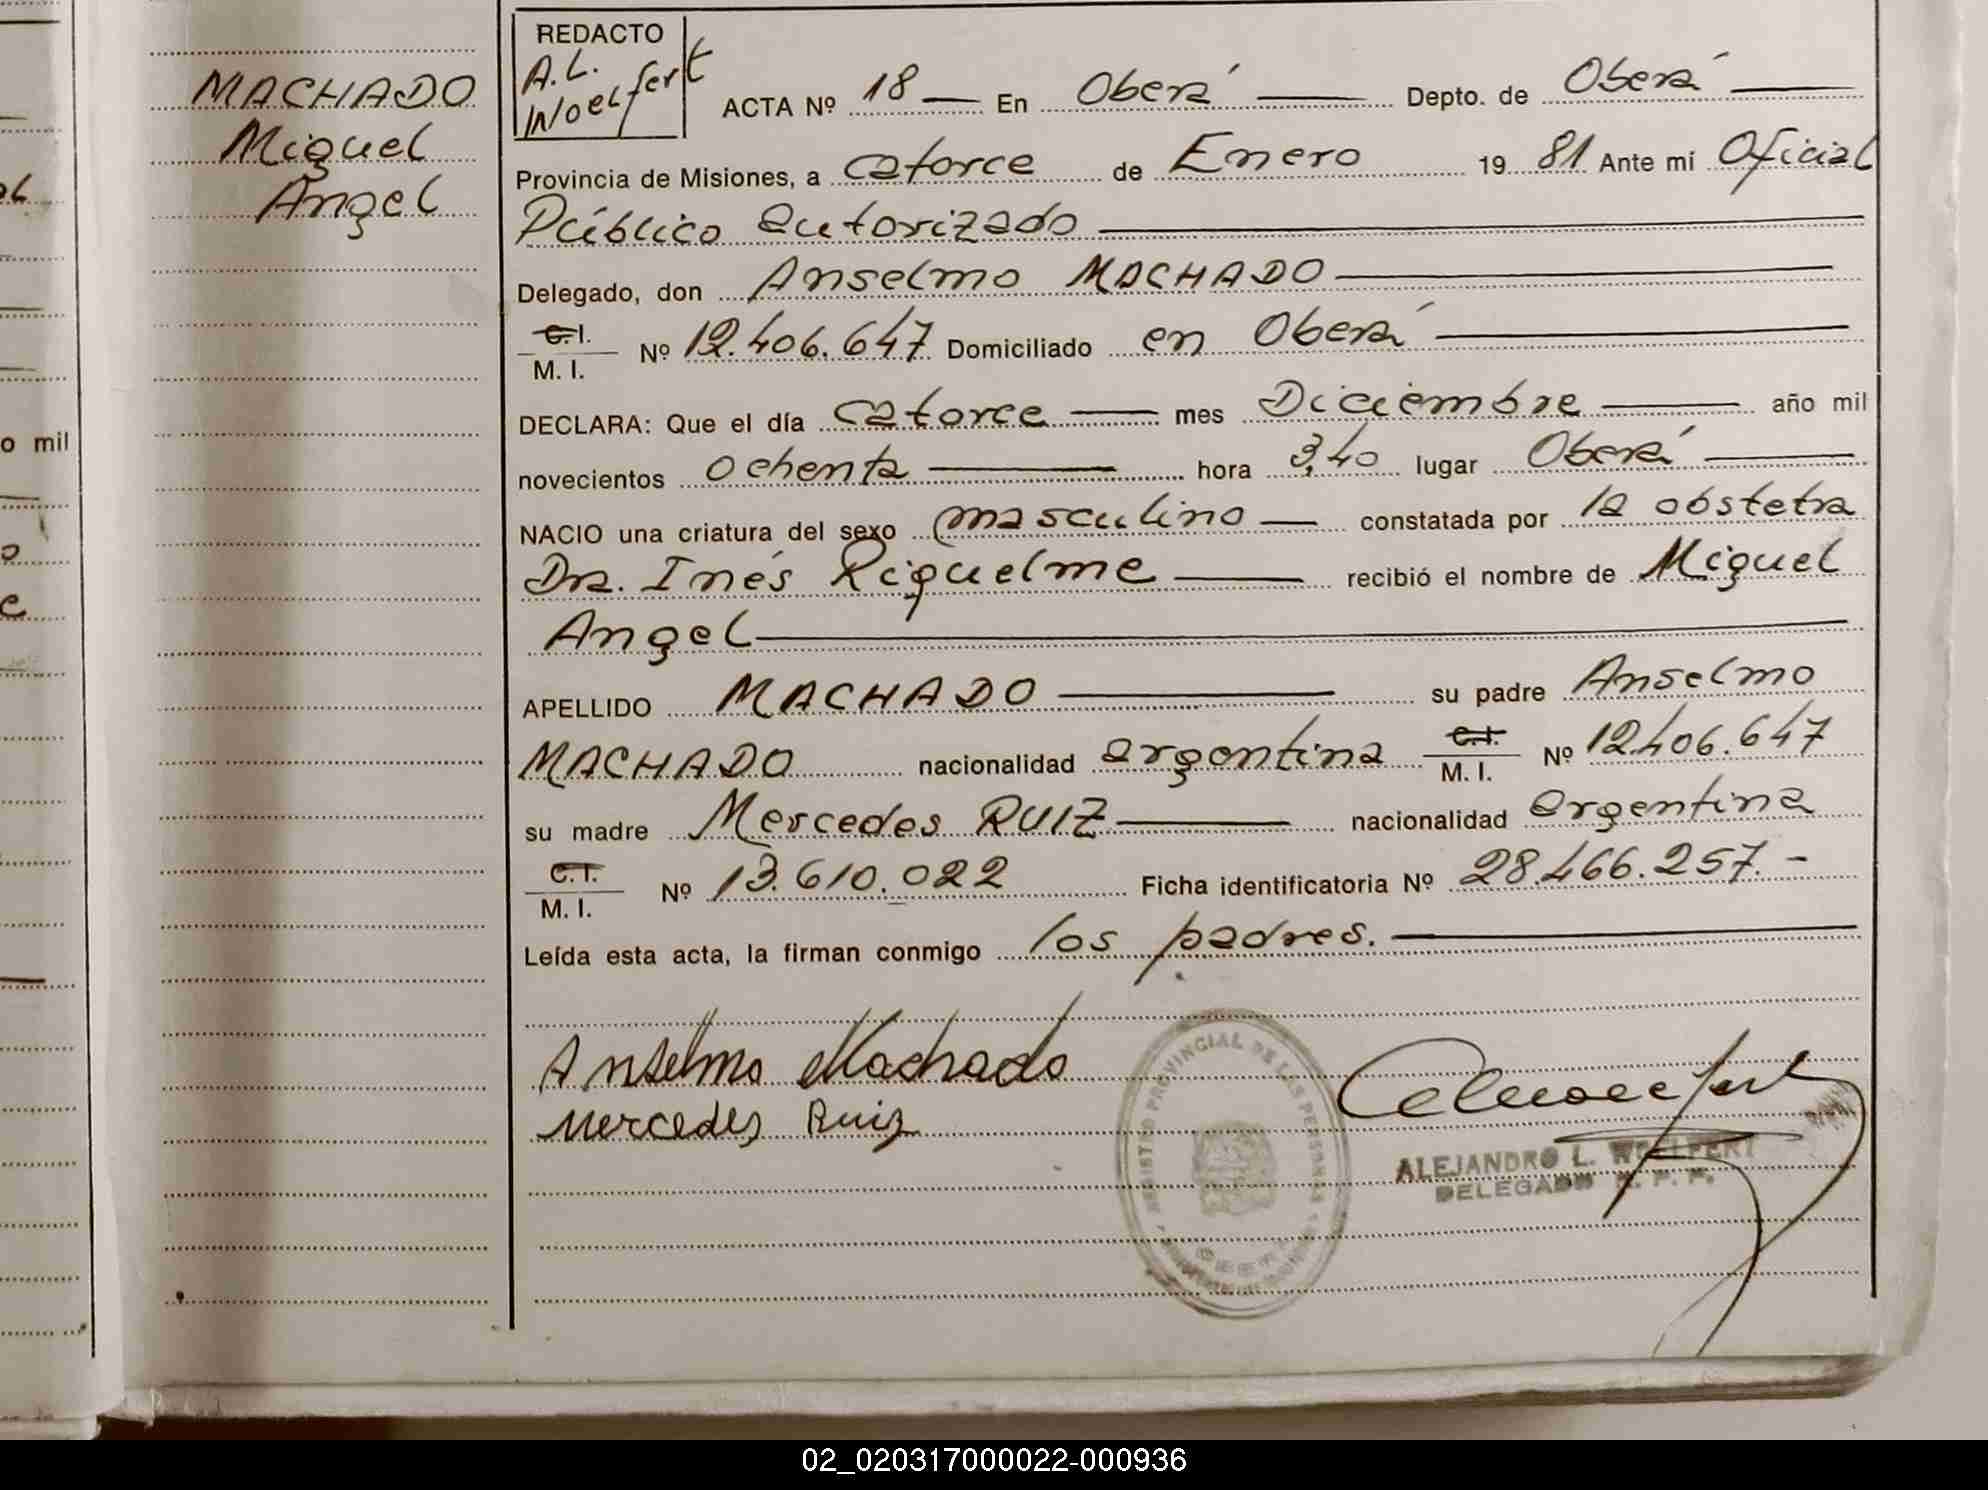 MACHADO
Miguel
Angel
REDACTO
A.L.
Woelfert
ACTA Nº 18 En Oberá Depto. de Oberá
Provincia de Misiones, a catorce de Enero 1981 Ante mi Oficial
Público autorizado
Delegado, don Anselmo MACHADO
C.I.
M. I. Nº 12.406.647 Domiciliado en Oberá
DECLARA: Que el día catorce mes Diciembre año mil
novecientos ochenta hora 3,40 lugar Oberá
NACIO una criatura del sexo masculino constatada por la obstetra
Dra. Inés Riquelme recibió el nombre de Miguel
Angel
APELLIDO MACHADO su padre Anselmo
MACHADO nacionalidad argentina C.I. M. I. Nº 12.406.647
su madre Mercedes RUIZ nacionalidad argentina
C.I.
M. I. Nº 13.610.022 Ficha identificatoria Nº 28.466.257.-
Leída esta acta, la firman conmigo los padres.
Anselmo Machado
Mercedes Ruiz
REGISTRO PROVINCIAL DE LAS PERSONAS
ALEJANDRO L. WOELFERT
DELEGADO R. P. P.
o mil
02_020317000022-000936